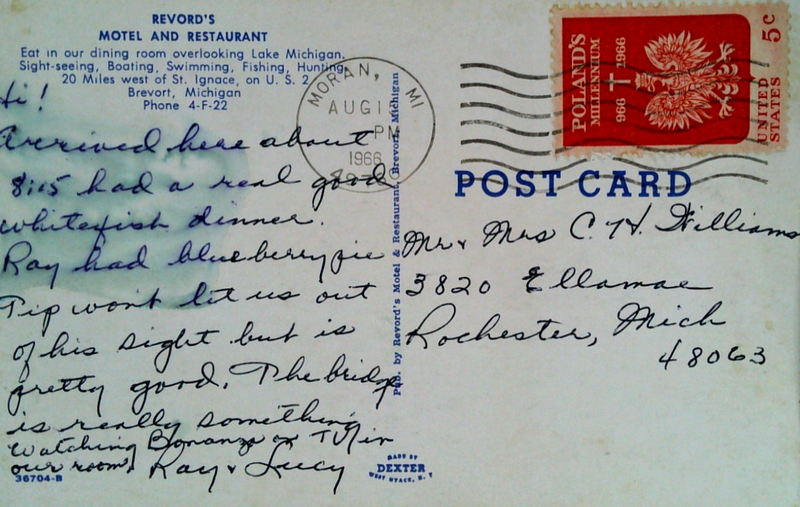 REVORD'S
MOTEL AND RESTAURANT
Eat in our dining room overlooking Lake Michigan.
Sight-seeing, Boating, Swimming, Fishing, Hunting
20 Miles west of St. Ignace, on U. S. 2
Brevort, Michigan
Phone 4-F-22
Hi!
Arrived here about
8:15 had a real good
whitefish dinner.
Ray had blueberry pie
Tip wont let us out
of his sight but is
pretty good. The bridge
is really something
Watching Bonanza on TV in
our room. Ray & Lucy
36704-B
Pub. by Revord's Motel & Restaurant, Brevort, Michigan
MADE BY
DEXTER
WEST NYACK, N. Y.
MORAN, MI
AUG 1
PM
1966
POLAND'S
MILLENNIUM
966 1966
UNITED
STATES 5c
POST CARD
Mr & Mrs C. H. Williams
3820 Ellamae
Rochester, Mich
48063